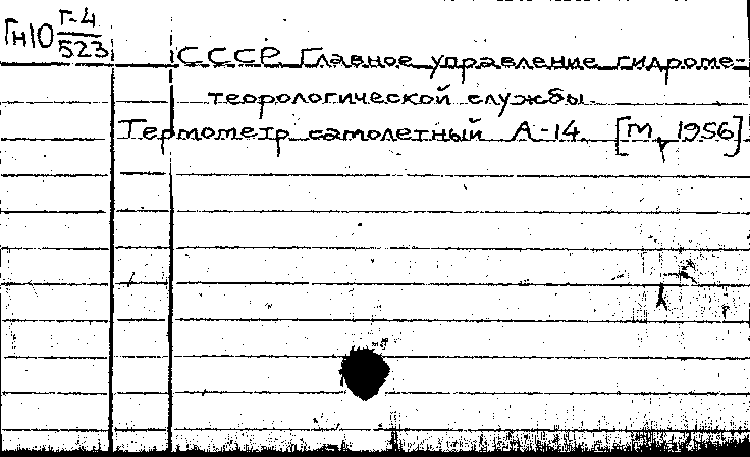 Гн10 Г-4/523
СССР Главное управление гидроме-
теорологической службы.
Термометр самолетный А-14. [М, 1956]